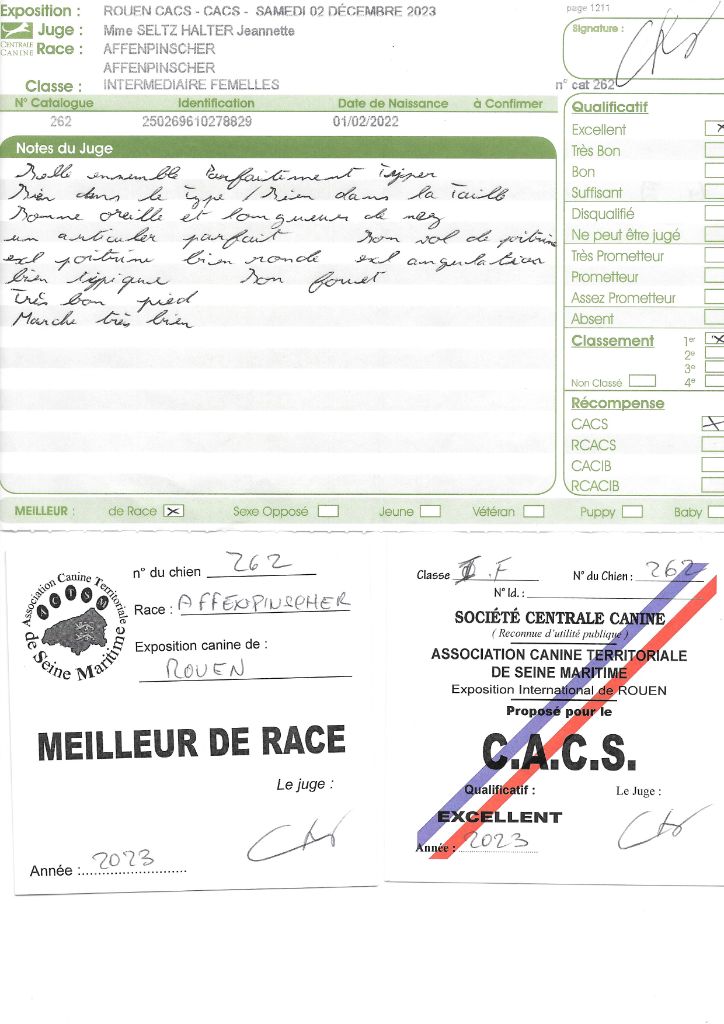 Exposition : ROUEN CACS - CACS - SAMEDI 02 DÉCEMBRE 2023
page 1211
Juge : Mme SELTZ HALTER Jeannette
Signature :
CENTRALE CANINE
Race : AFFENPINSCHER
AFFENPINSCHER
Classe : INTERMEDIAIRE FEMELLES
n° cat 262
N° Catalogue Identification Date de Naissance à Confirmer
262 250269610278829 01/02/2022
Notes du Juge
Belle ensemble Parfaitement Typer
Bien dans le Type / Bien dans la Taille
Bonne oreille et longueur de nez
un articuler parfait Bon sol de poitrine
exl poitrine bien ronde exl angulation
bien typique Bon fouet
Très bon pied
Marche très bien
Qualificatif
Excellent X
Très Bon
Bon
Suffisant
Disqualifié
Ne peut être jugé
Très Prometteur
Prometteur
Assez Prometteur
Absent
Classement 1er X
2e
3e
Non Classé 4e
Récompense
CACS X
RCACS
CACIB
RCACIB
MEILLEUR : de Race X Sexe Opposé Jeune Vétéran Puppy Baby
Association Canine Territoriale
ACTSM
de Seine Maritime
n° du chien 262
Race : AFFENPINSCHER
Exposition canine de :
ROUEN
MEILLEUR DE RACE
Le juge :
Année : 2023
Classe I.F N° du Chien : 262
N° Id. :
SOCIÉTÉ CENTRALE CANINE
( Reconnue d'utilité publique )
ASSOCIATION CANINE TERRITORIALE
DE SEINE MARITIME
Exposition International de ROUEN
Proposé pour le
C.A.C.S.
Qualificatif : Le Juge :
EXCELLENT
Année : 2023